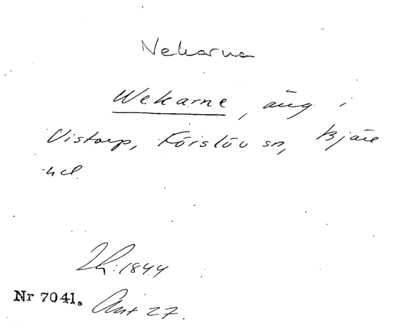 Vekarna
Wekarne, äng i
Vistorp, Förslöv sn, Bjäre
hd.
Lh: 1844
Nr 7041. Akt 27.